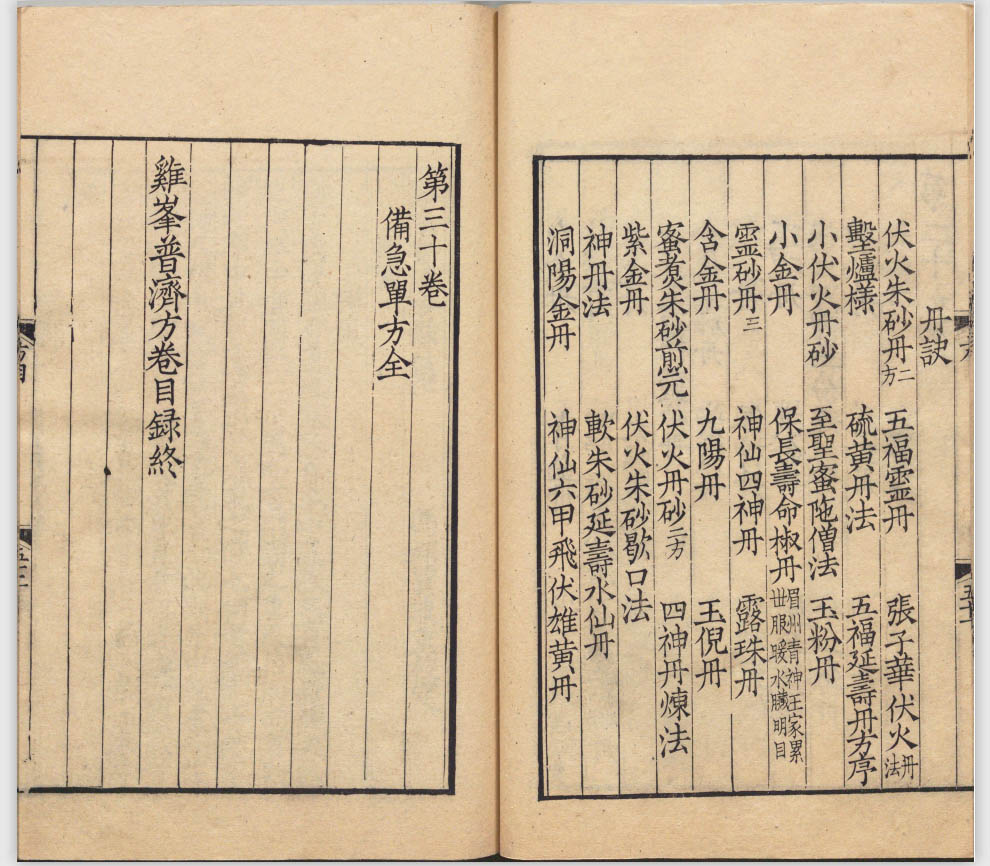 丹訣
伏火朱砂丹二方 五福靈丹 張子華伏火丹法
墼爐樣 硫黄丹法 五福延壽丹方序
小伏火丹砂 至聖蜜陁僧法 玉粉丹
小金丹 保長壽命椒丹眉州青神王家累世服暖水臓明目
霊砂丹三 神仙四神丹 露珠丹
含金丹 九陽丹 玉倪丹
蜜煮朱砂煎元 伏火丹砂二方 四神丹煉法
紫金丹 伏火朱砂歇口法
神丹法 軟朱砂延壽水仙丹
洞陽金丹 神仙六甲飛伏雄黄丹
第三十卷
備急單方全
雞峯普濟方卷目録終